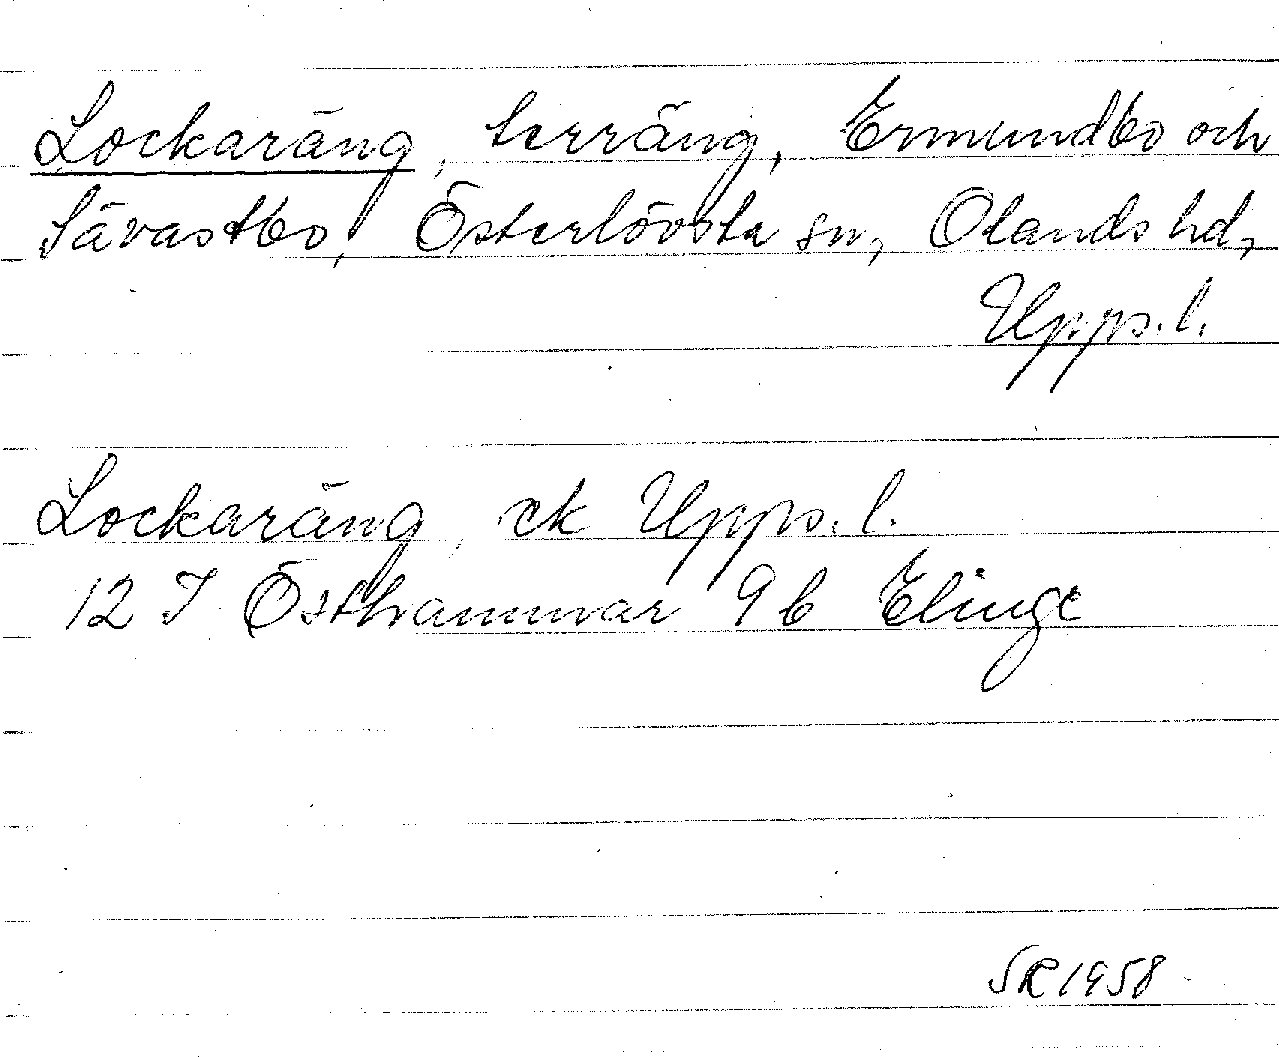 Lockaräng, terräng, Ermundbo och
Sävastbo, Österlövsta sn, Olands hd,
Upps. l.
Lockaräng, ek Upps. l.
12 I Östhammar 9b Elinge
SR 1958